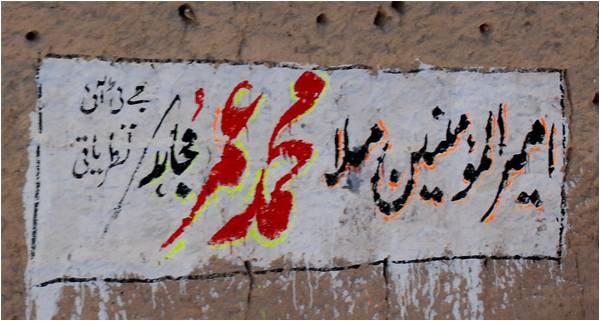 امیر المؤمنین ملا محمد عمر مجاہد
جے ٹی آئی
نظریاتی